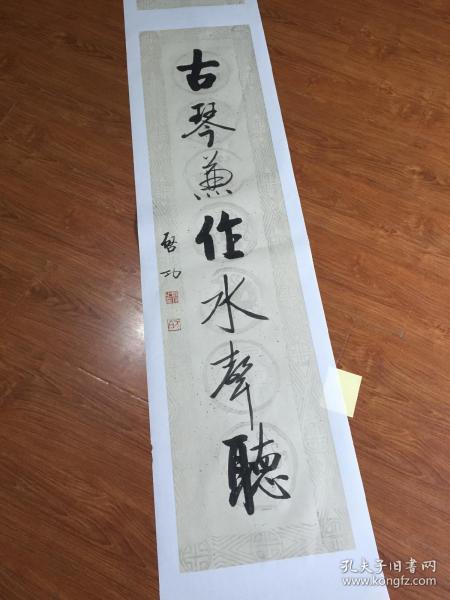 古琴兼作水聲聽
啓功
孔夫子旧书网
www.kongfz.com